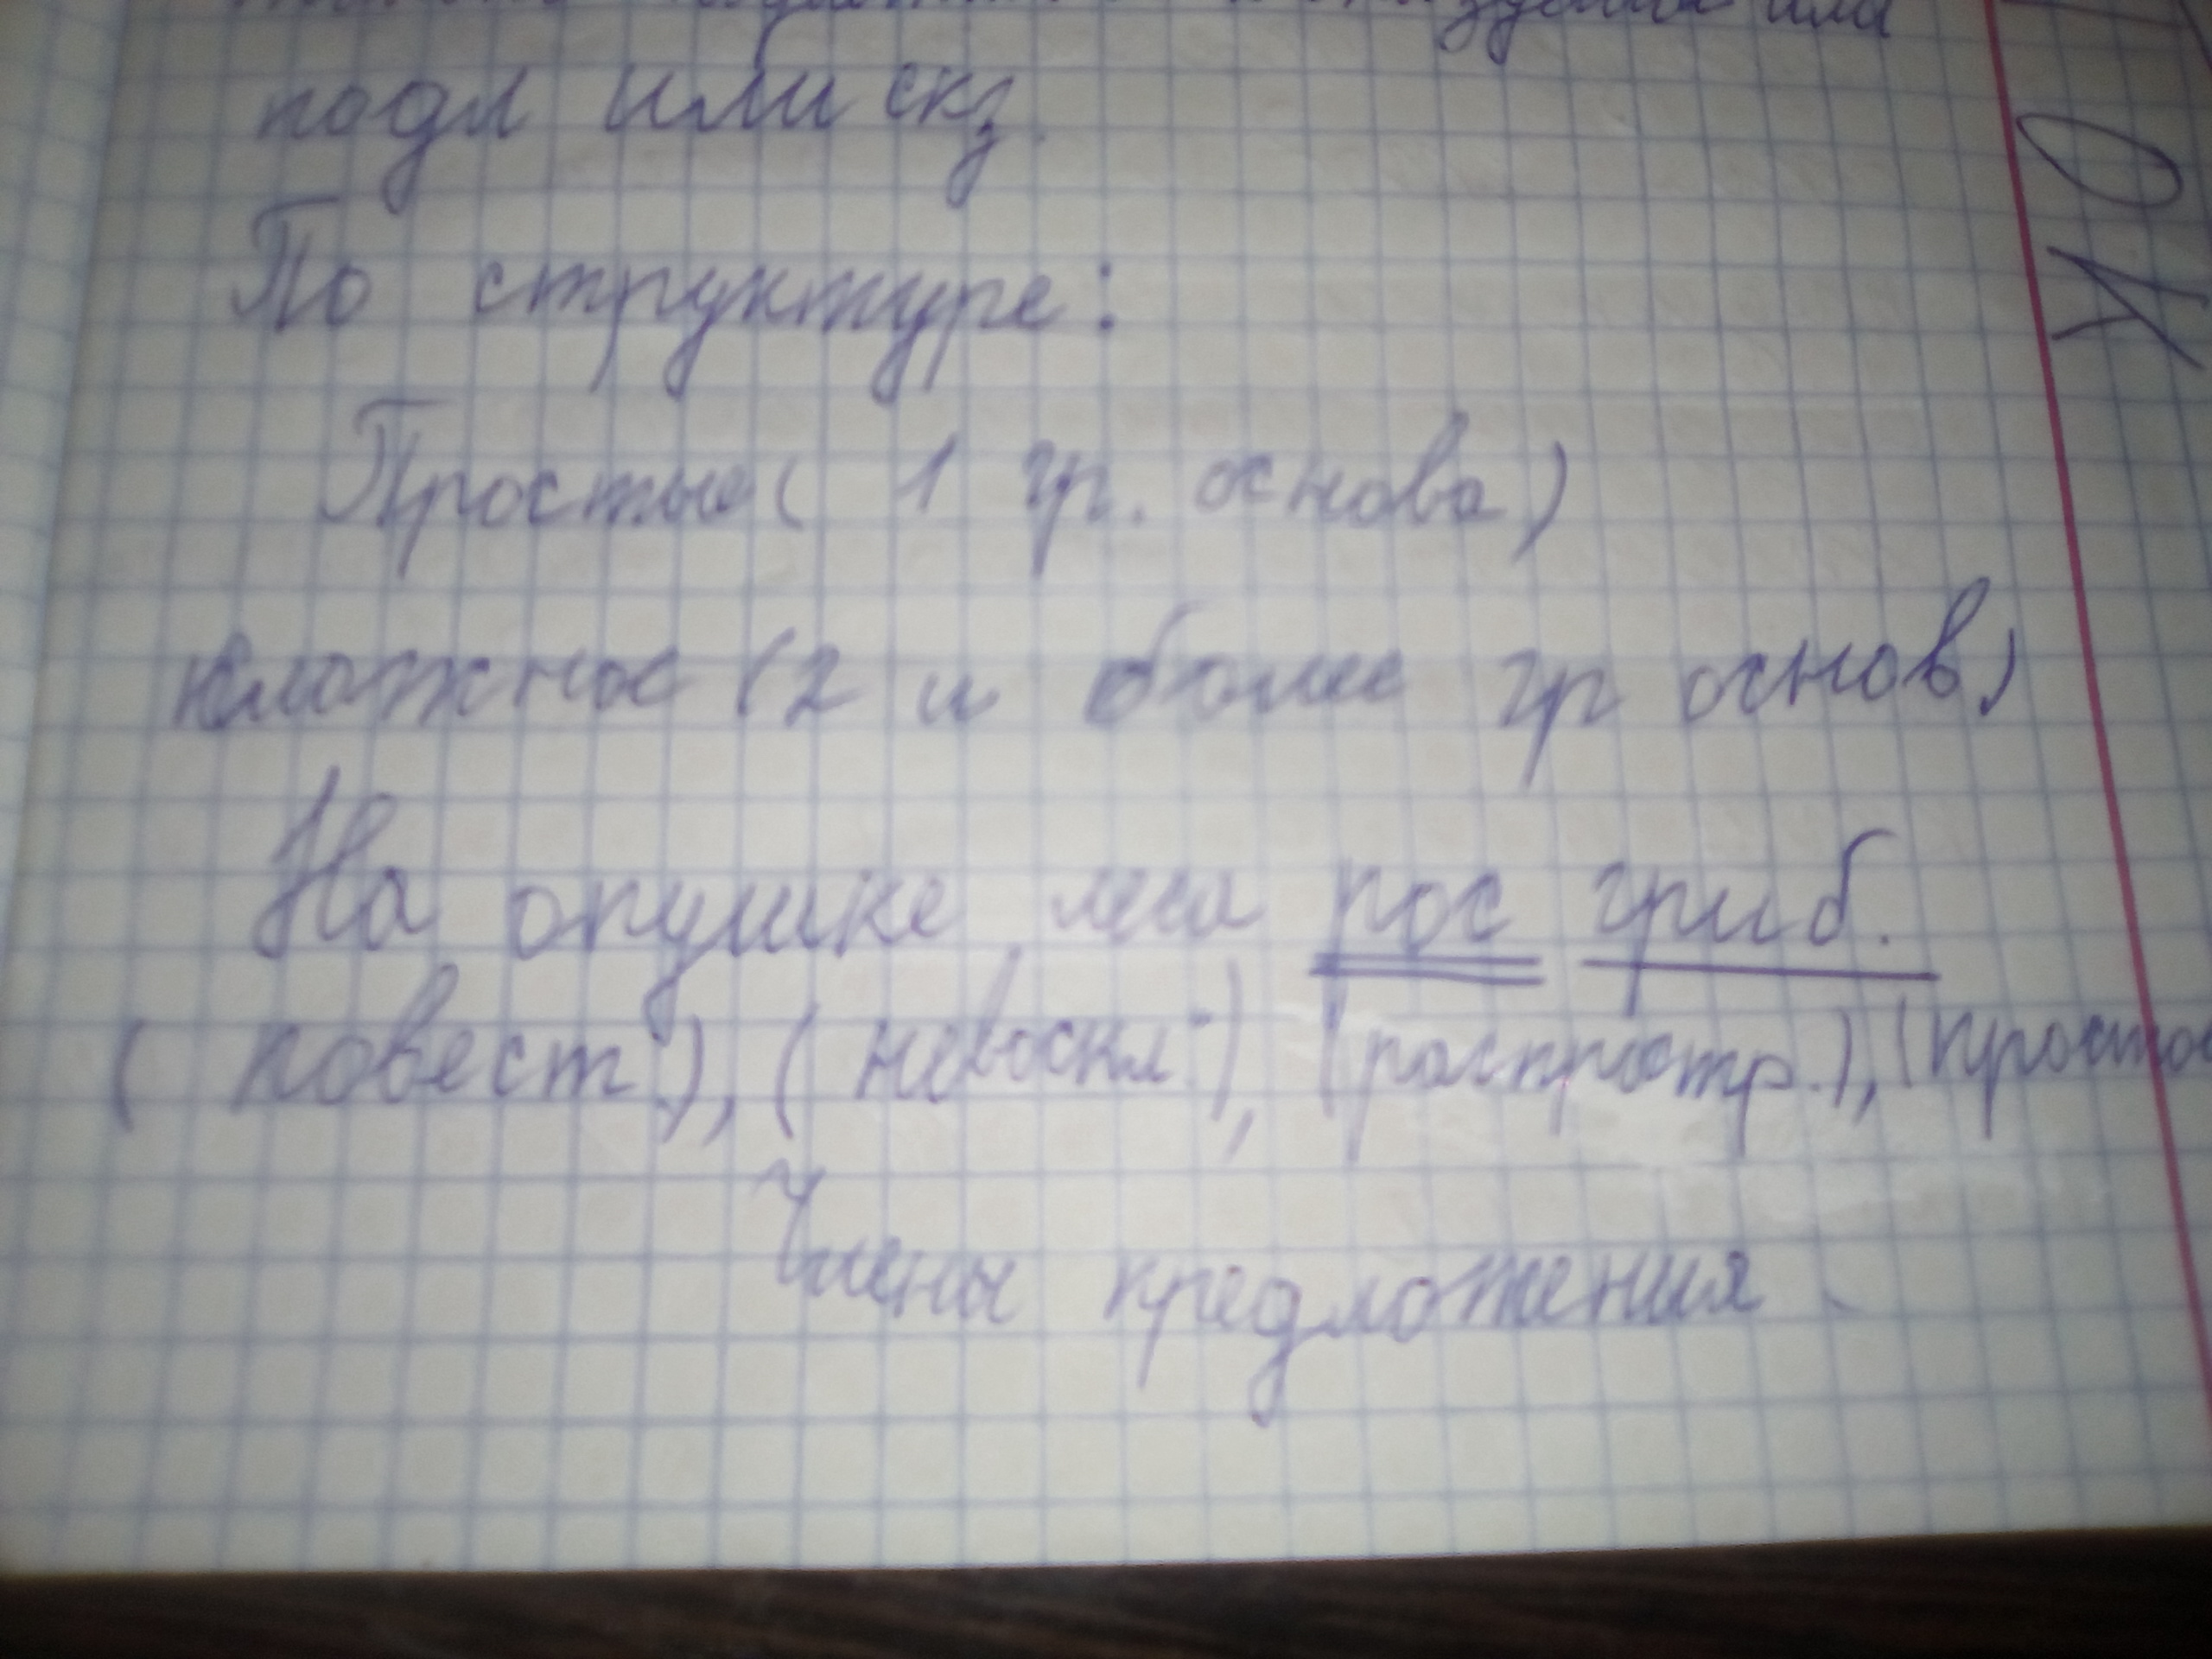 или
подл или скз.
По структуре:
Простые ( 1 гр. основа)
сложное (2 и более гр основ)
На опушке леса рос гриб.
( повест.), ( невоскл.), (распростр.), (простое
Члены предложения
ОК